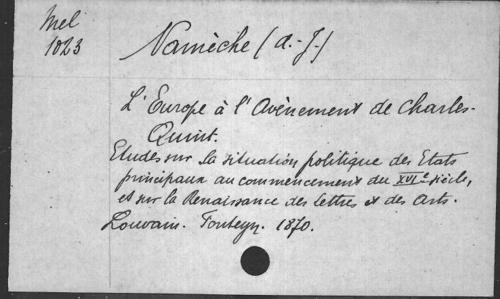 Mel
1023
Namèche (A.-J.)
L'Europe à l'Avènement de Charles-
Quint.
Etudes sur la situation politique des Etats
principaux au commencement du XVIe siècle,
et sur la Renaissance des lettres et des Arts.
Louvain. Fonteyn. 1870.